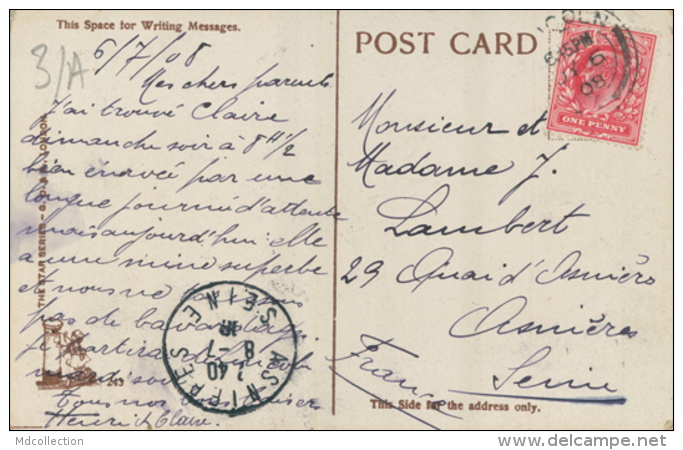 This Space for Writing Messages.
POST CARD
3/A
6/7/08
Mes chers parents
J'ai trouvé Claire
dimanche soir à 8H 1/2
bien énervée par une
longue journée d'attente
mais aujourd'hui elle
a une mine superbe
et nous ne
pas de
Je partirai
soir
Tous nos baisers
Henri & Claire.
Monsieur et
Madame J.
Lambert
29 Quai d'Asnières
Asnières
Seine
France
COLN
6.15PM
JY 6
08
ONE PENNY
ASNIERES
SEINE
7 40
8 - 7
08
THE STAR SERIES - G.D.&D., LONDON
This Side for the address only.
Mdcollection
delcampe.net